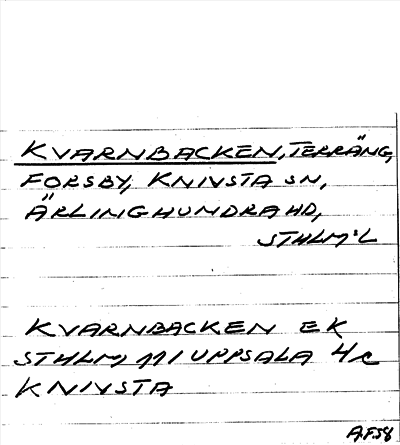 KVARNBACKEN, TERRÄNG,
FORSBY, KNIVSTA SN,
ÄRLINGHUNDRA HD,
STHLM:L
KVARNBACKEN EK
STHLM, 11 I UPPSALA 4c
KNIVSTA
AF58